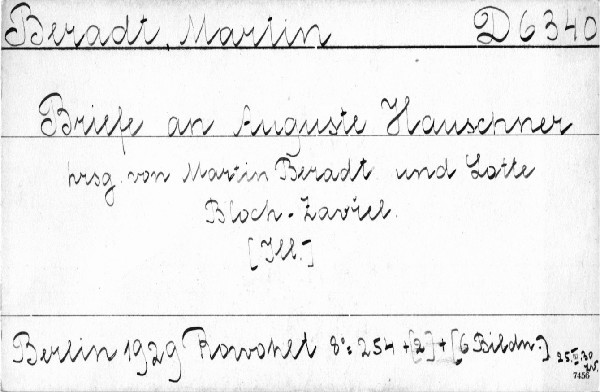 Beradt, Martin D 6340
Briefe an Auguste Hauschner
hrsg. von Martin Beradt und Lotte
Bloch-Zavřel.
[Ill.]
Berlin 1929 Rowohlt 8°: 254 + [2] + [6 Bildn.]
7456